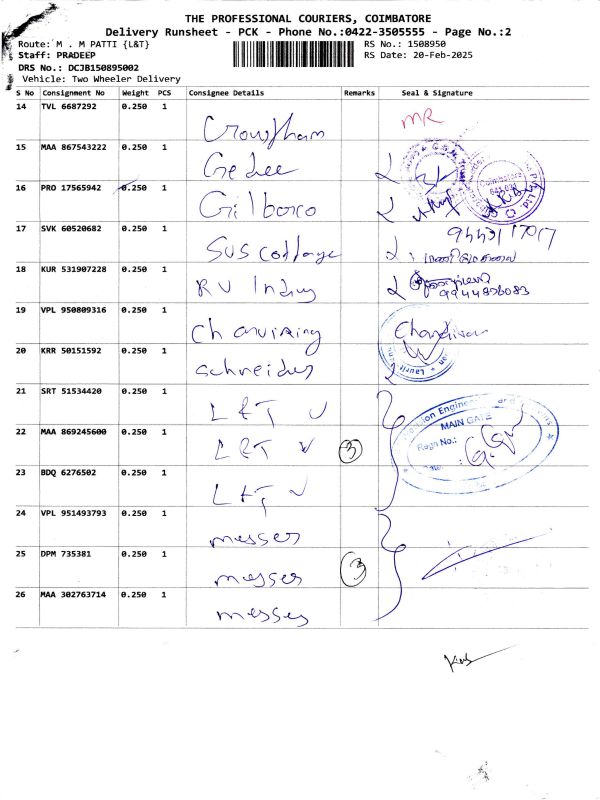 THE PROFESSIONAL COURIERS, COIMBATORE
Delivery Runsheet - PCK - Phone No.:0422-3505555 - Page No.:2
Route: M . M PATTI {L&T}
RS No.: 1508950
Staff: PRADEEP
RS Date: 20-Feb-2025
DRS No.: DCJB150895002
Vehicle: Two Wheeler Delivery
S No Consignment No Weight PCS Consignee Details Remarks Seal & Signature
14 TVL 6687292 0.250 1 MR
15 MAA 867543222 0.250 1 Gedee
16 PRO 17565942 0.250 1 Gilbarco
17 SVK 60520682 0.250 1
18 KUR 531907228 0.250 1 RV
9944826083
19 VPL 950809316 0.250 1
20 KRR 50151592 0.250 1 schneider
21 SRT 51534420 0.250 1 L&T
22 MAA 869245600 0.250 1 L&T 3
MAIN GATE
Regn No.:
Date:
23 BDQ 6276502 0.250 1 L&T
24 VPL 951493793 0.250 1 messer
25 DPM 735381 0.250 1 messer 3
26 MAA 302763714 0.250 1 messer